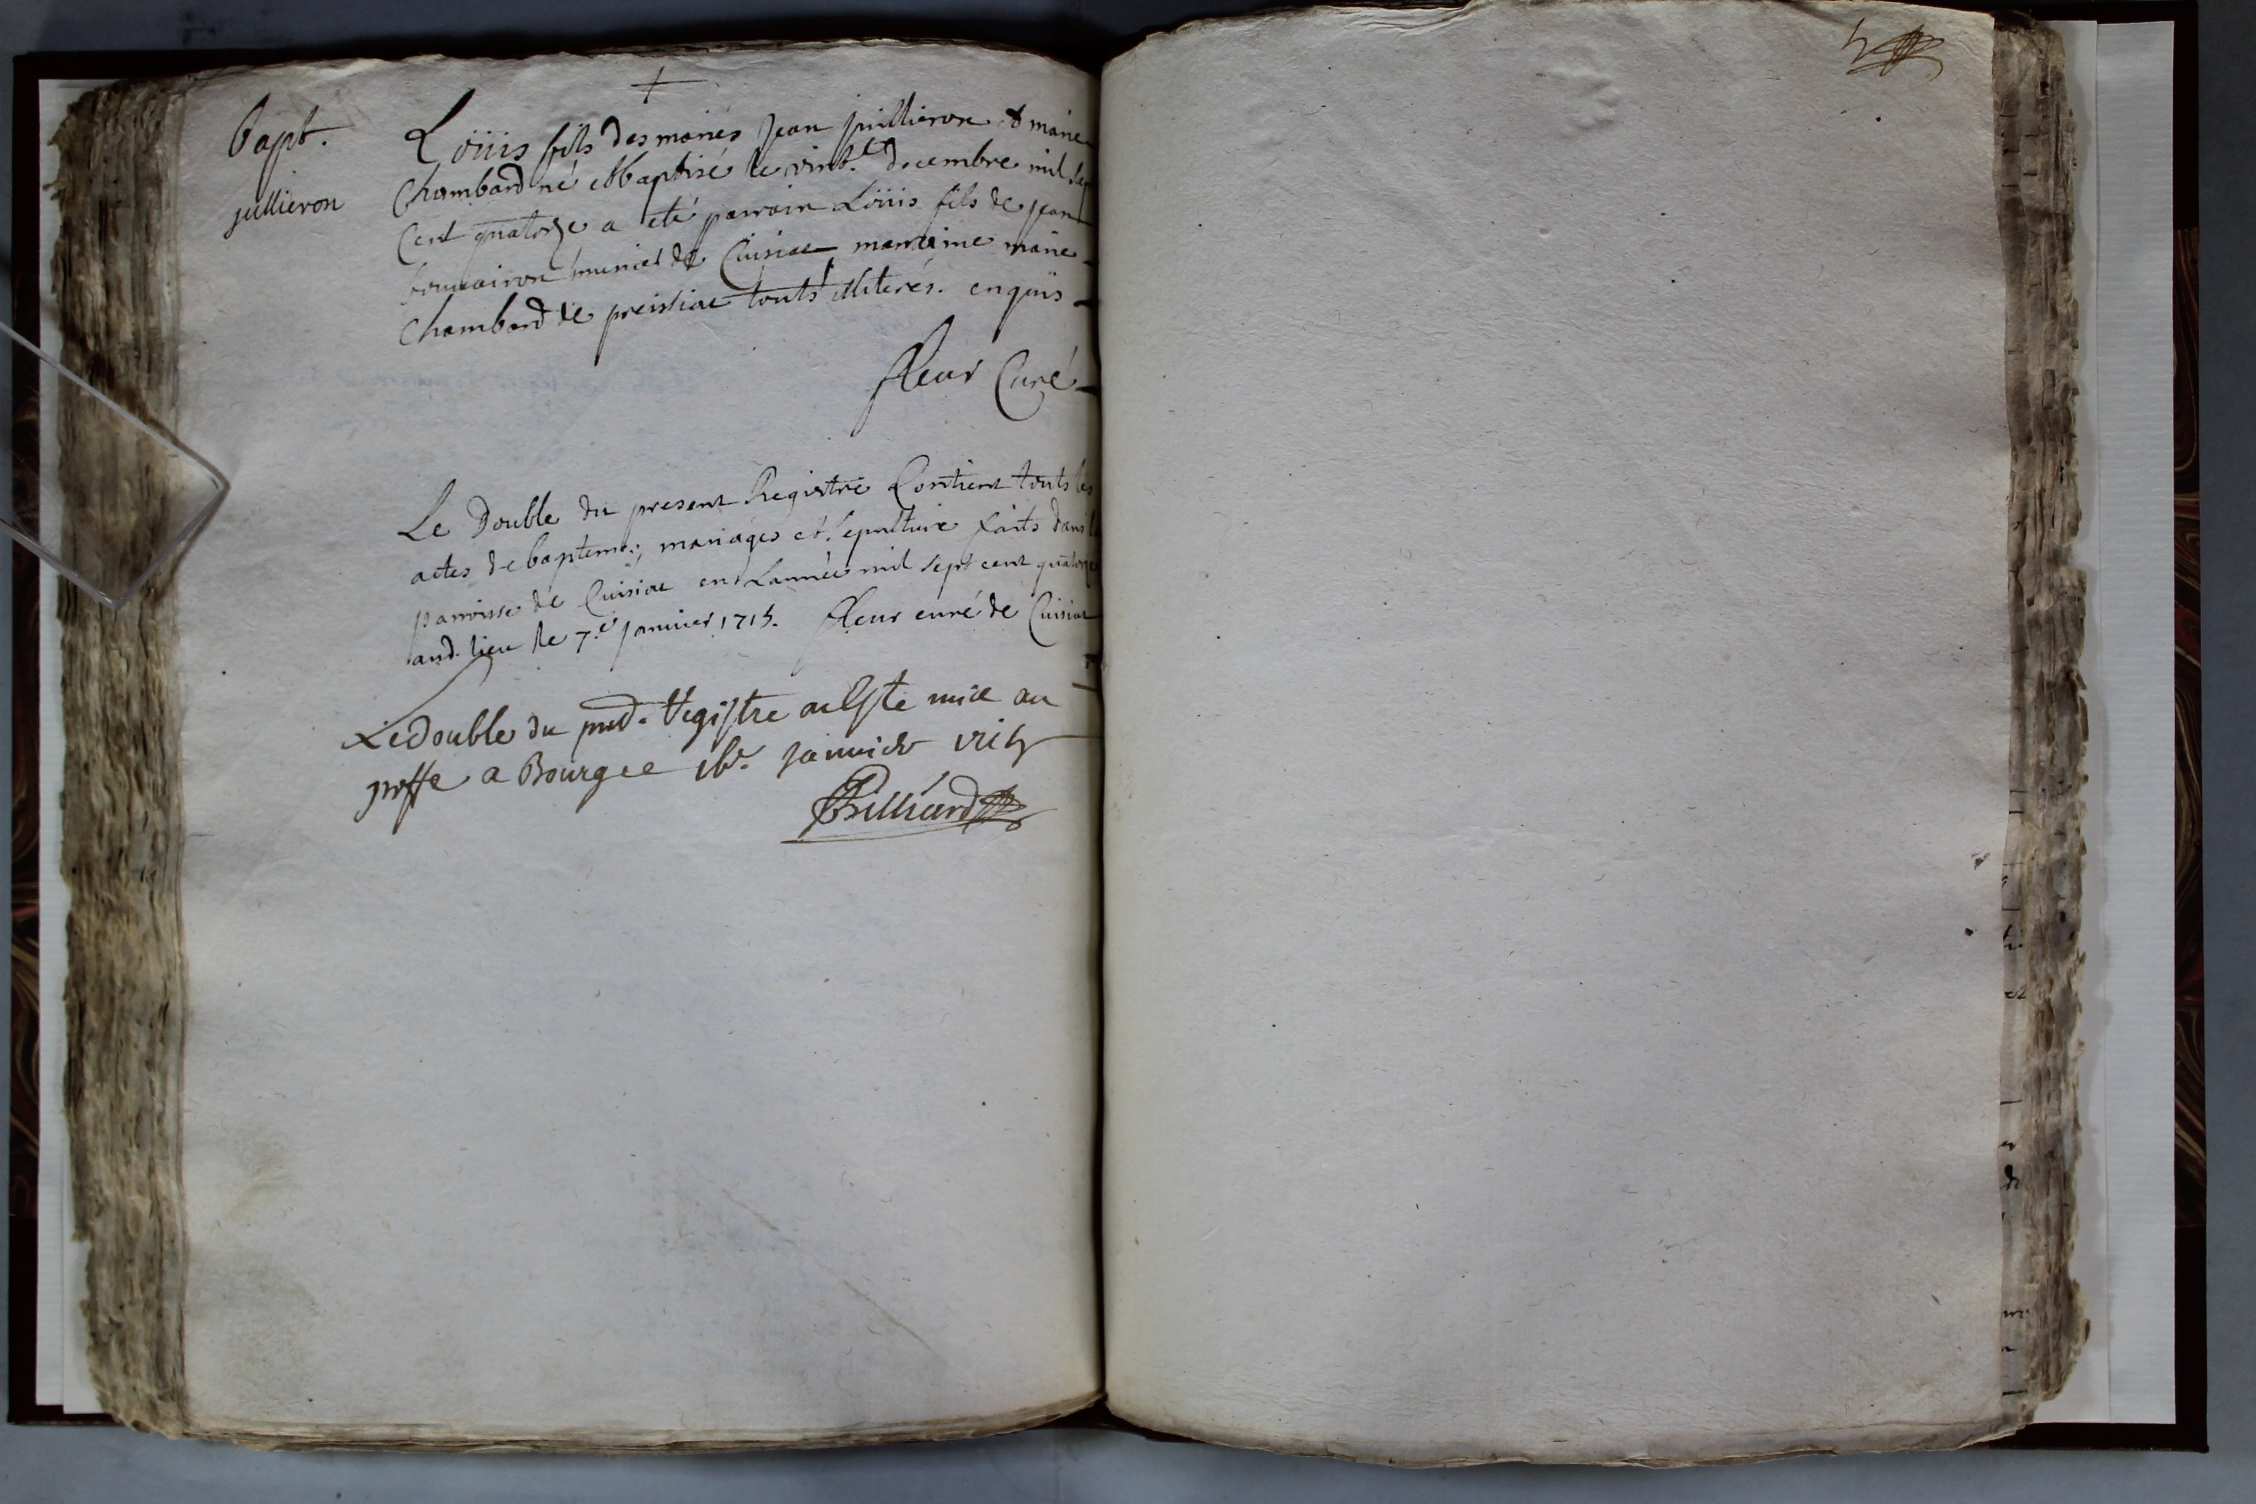 Bapt.
jullieron
Loüis fils des mariés Jean jullieron & marie
Chambard né et baptisé le vint.e decembre mil sept
Cent quatorze a eté parrain Loüis fils de jean
munier de Cuisiat marraine marie
Chambard de preissiat touts illiterés. enquis
fleur Curé
Le Double du present Registre Contient touts les
actes de baptemes, mariages et sepulture faits dans la
parroisse de Cuisiat en Lannée mil sept cent quatorze
aud. lieu le 7.e janvier 1715. fleur curé de Cuisiat
Le double du pnt. Registre a Esté mis au
greffe a Bourg ce janvier 1715
Brilliard
5